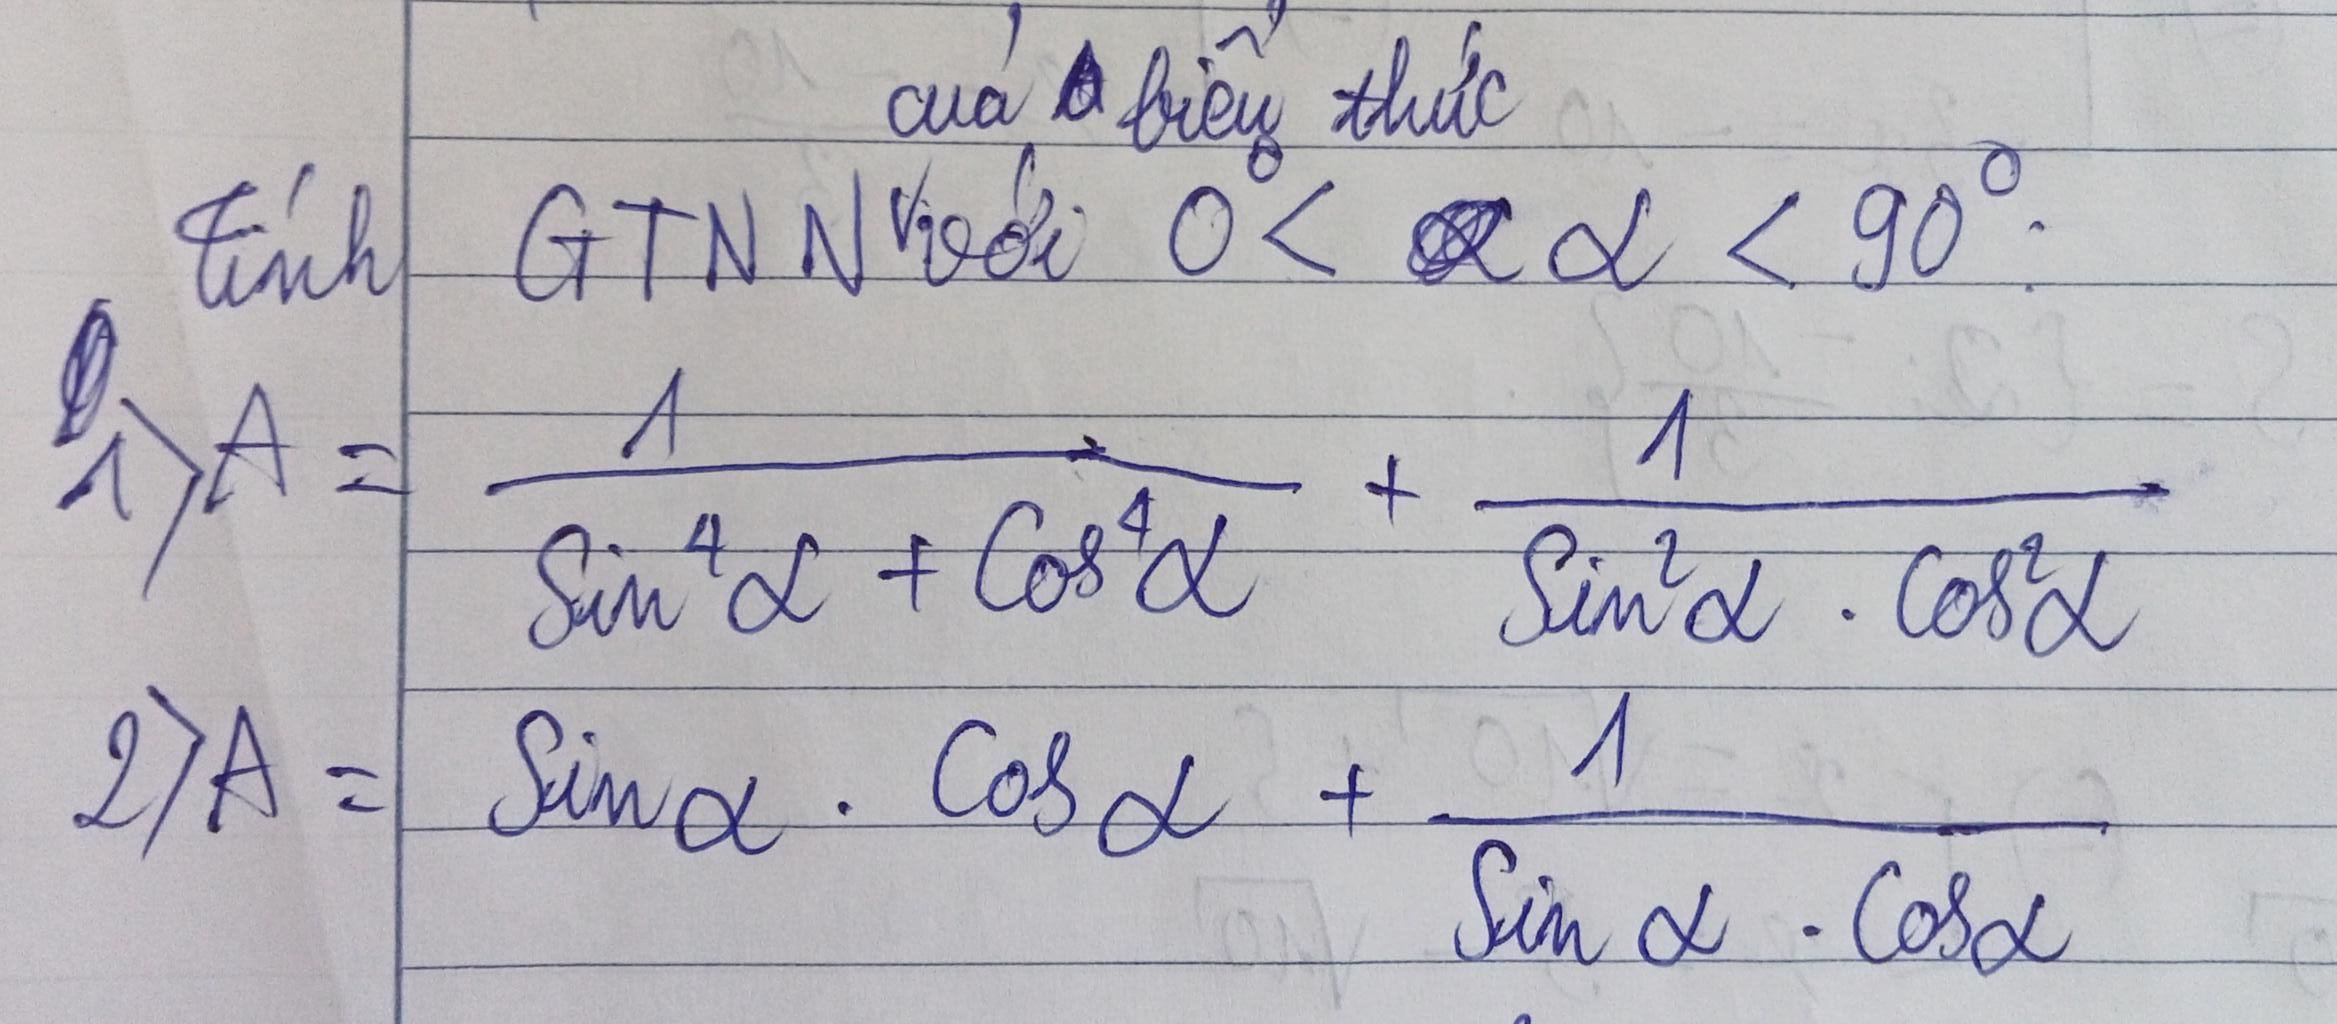 của biểu thức
Tính GTNN với 0° < α < 90°:
1) A = 1/(Sin⁴α + Cos⁴α) + 1/(Sin²α . Cos²α)
2) A = Sin α . Cos α + 1/(Sin α . Cos α)